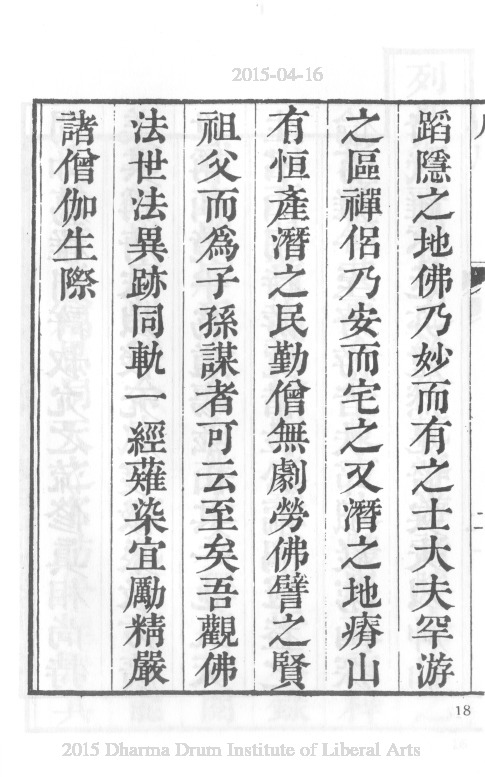 2015-04-16
蹈隱之地佛乃妙而有之士大夫罕游
之區禪侶乃安而宅之又潛之地瘠山
有恒產潛之民勤僧無劇勞佛譬之賢
祖父而為子孫謀者可云至矣吾觀佛
法世法異跡同軌一經薙染宜勵精嚴
諸僧伽生際
18
2015 Dharma Drum Institute of Liberal Arts